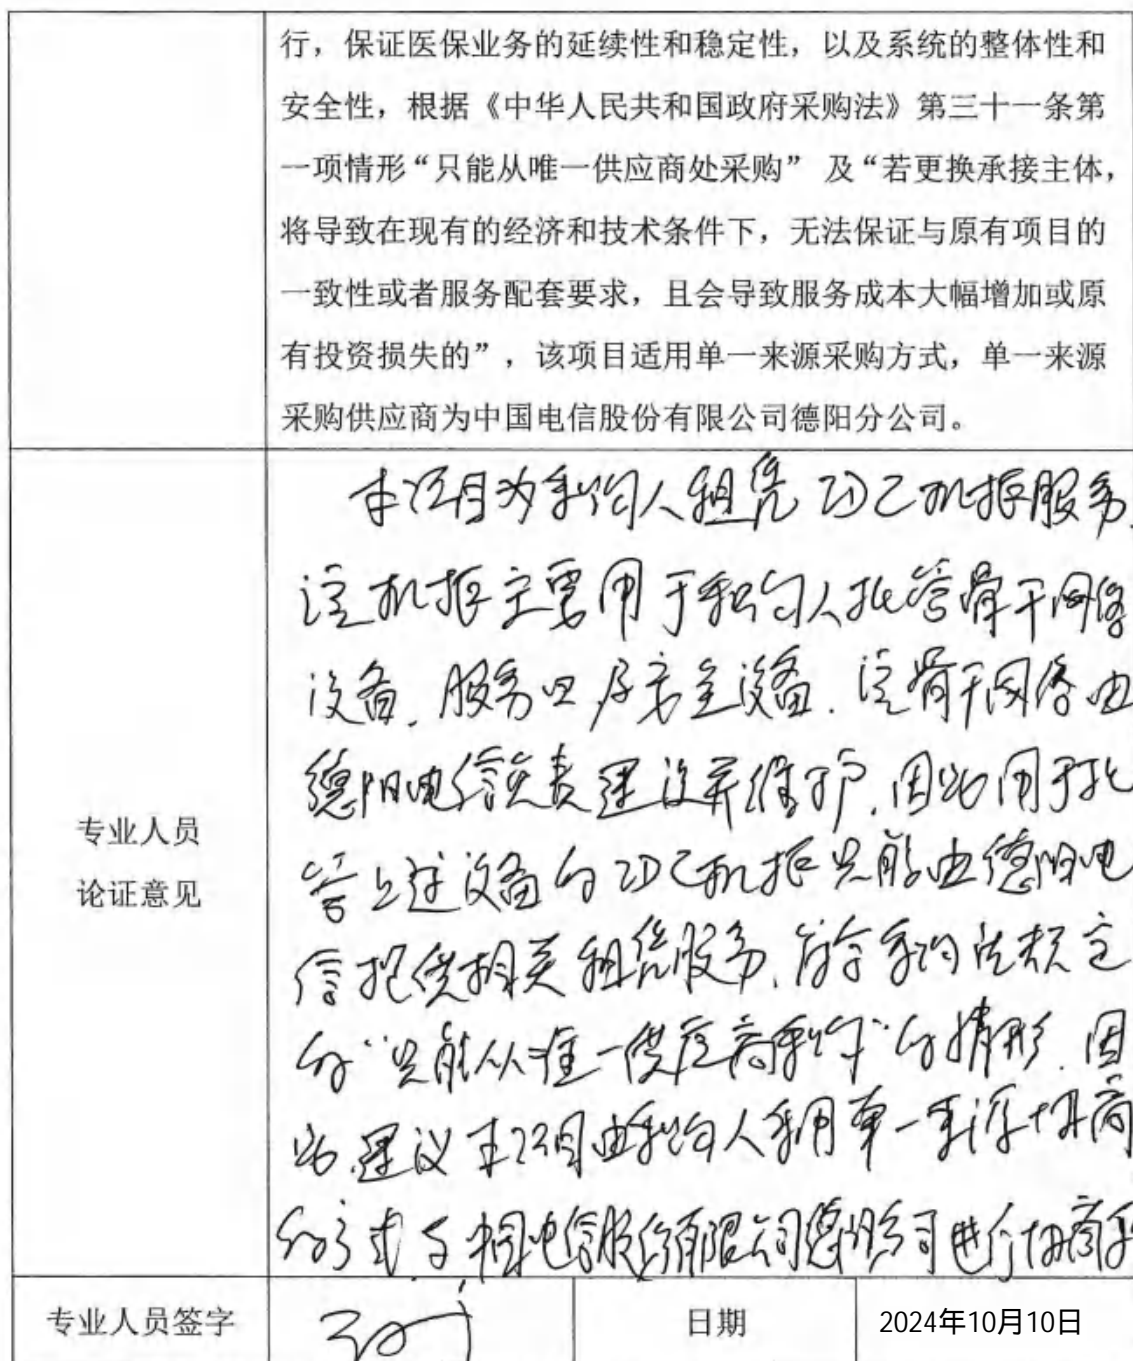 行，保证医保业务的延续性和稳定性，以及系统的整体性和
安全性，根据《中华人民共和国政府采购法》第三十一条第
一项情形“只能从唯一供应商处采购” 及“若更换承接主体，
将导致在现有的经济和技术条件下，无法保证与原有项目的
一致性或者服务配套要求，且会导致服务成本大幅增加或原
有投资损失的”，该项目适用单一来源采购方式，单一来源
采购供应商为中国电信股份有限公司德阳分公司。
专业人员
论证意见
本项目为采购人租凭IDC机柜服务
该机柜主要用于采购人托管骨干网络
设备、服务四及安全设备.该骨干网络由
德阳电信负责建设并维护,因此用于托
管上述设备的IDC机柜只能由德阳电
信提供相关租凭服务,符合采购法规定
的“只能从唯一供应商采购”的情形.因
此,建议本项目由采购人采用单一来源协商
的方式与中国电信股份有限公司德阳分公司进行协商采
专业人员签字
日期
2024年10月10日